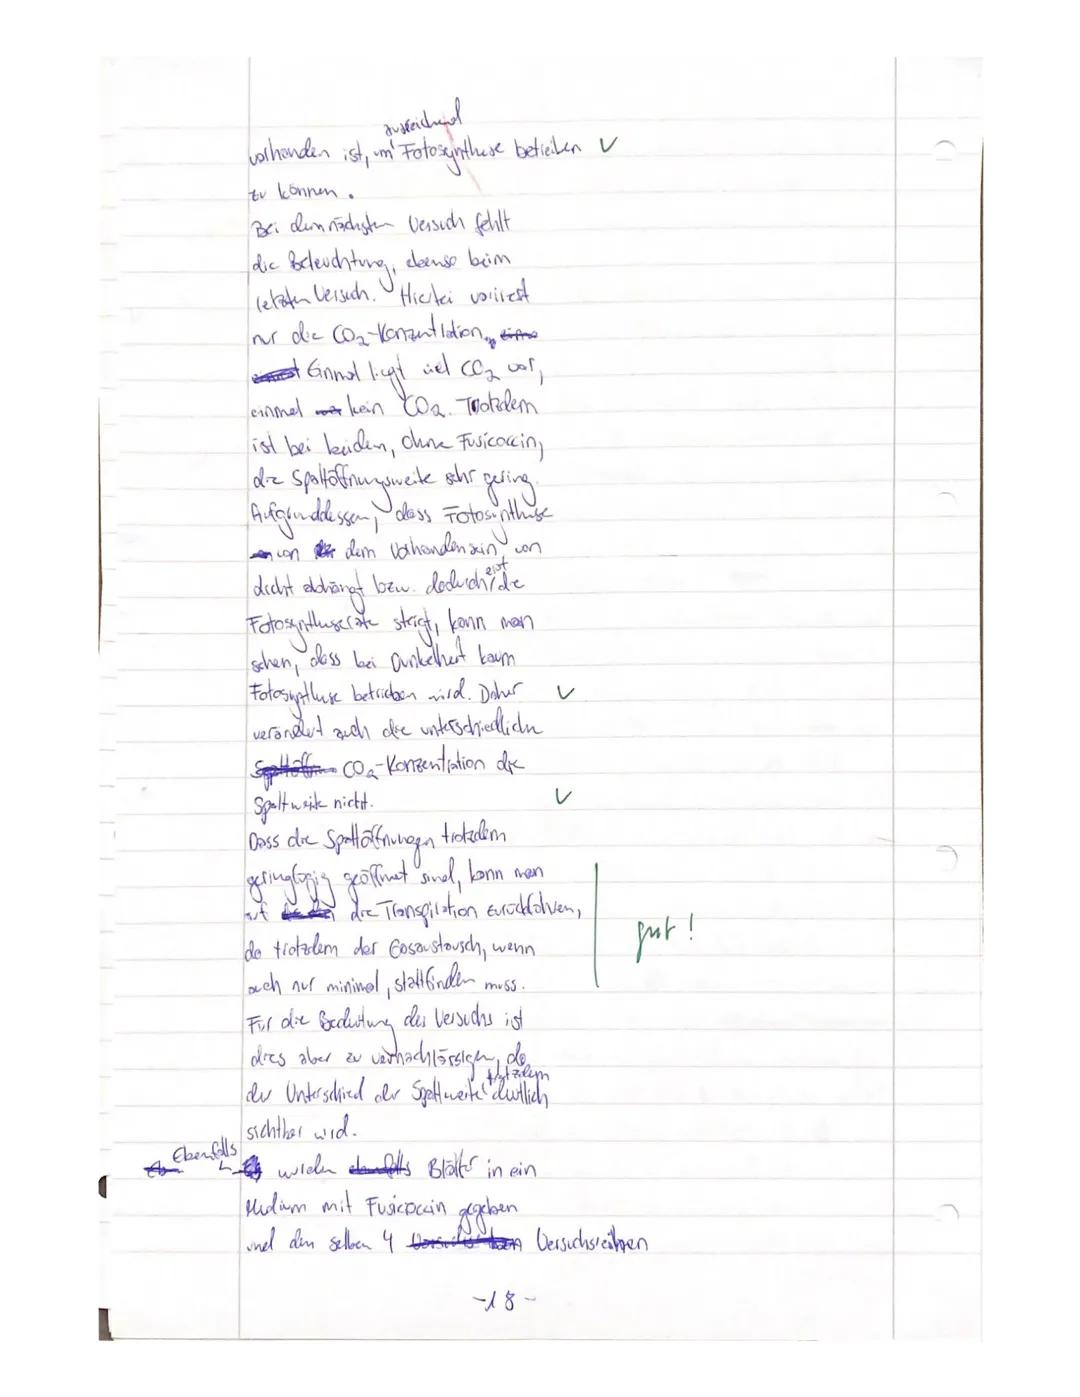 ausreichend
vorhanden ist, um Fotosynthese betreiben ✓
zu können.
Bei dem nächsten Versuch fehlt
die Beleuchtung, ebenso beim
letzten Versuch. Hierbei variiert
nur die CO₂-Konzentration,
Einmal liegt viel CO₂ vor,
einmal kein CO₂. Trotzdem
ist bei beiden, ohne Fusicoccin,
die Spaltöffnungsweite sehr gering.
Aufgrunddessen, dass Fotosynthese
von dem Vorhandensein von
Licht abhängt bzw. dadurch erst die
Fotosyntheserate steigt, kann man
sehen, dass bei Dunkelheit kaum
Fotosynthese betrieben wird. Daher ✓
verändert auch die unterschiedliche
CO₂-Konzentration die
Spaltweite nicht. ✓
Dass die Spaltöffnungen trotzdem
geringfügig geöffnet sind, kann man
auf die Transpiration zurückführen,
da trotzdem der Gasaustausch, wenn gut!
auch nur minimal, stattfinden muss.
Für die Bedeutung des Versuchs ist
dies aber zu vernachlässigen, da
der Unterschied der Spaltweite trotzdem deutlich
sichtbar wird.
Ebenfalls wurden Blätter in ein
Medium mit Fusicoccin gegeben
und den selben 4 Versuchsreihen
-18-